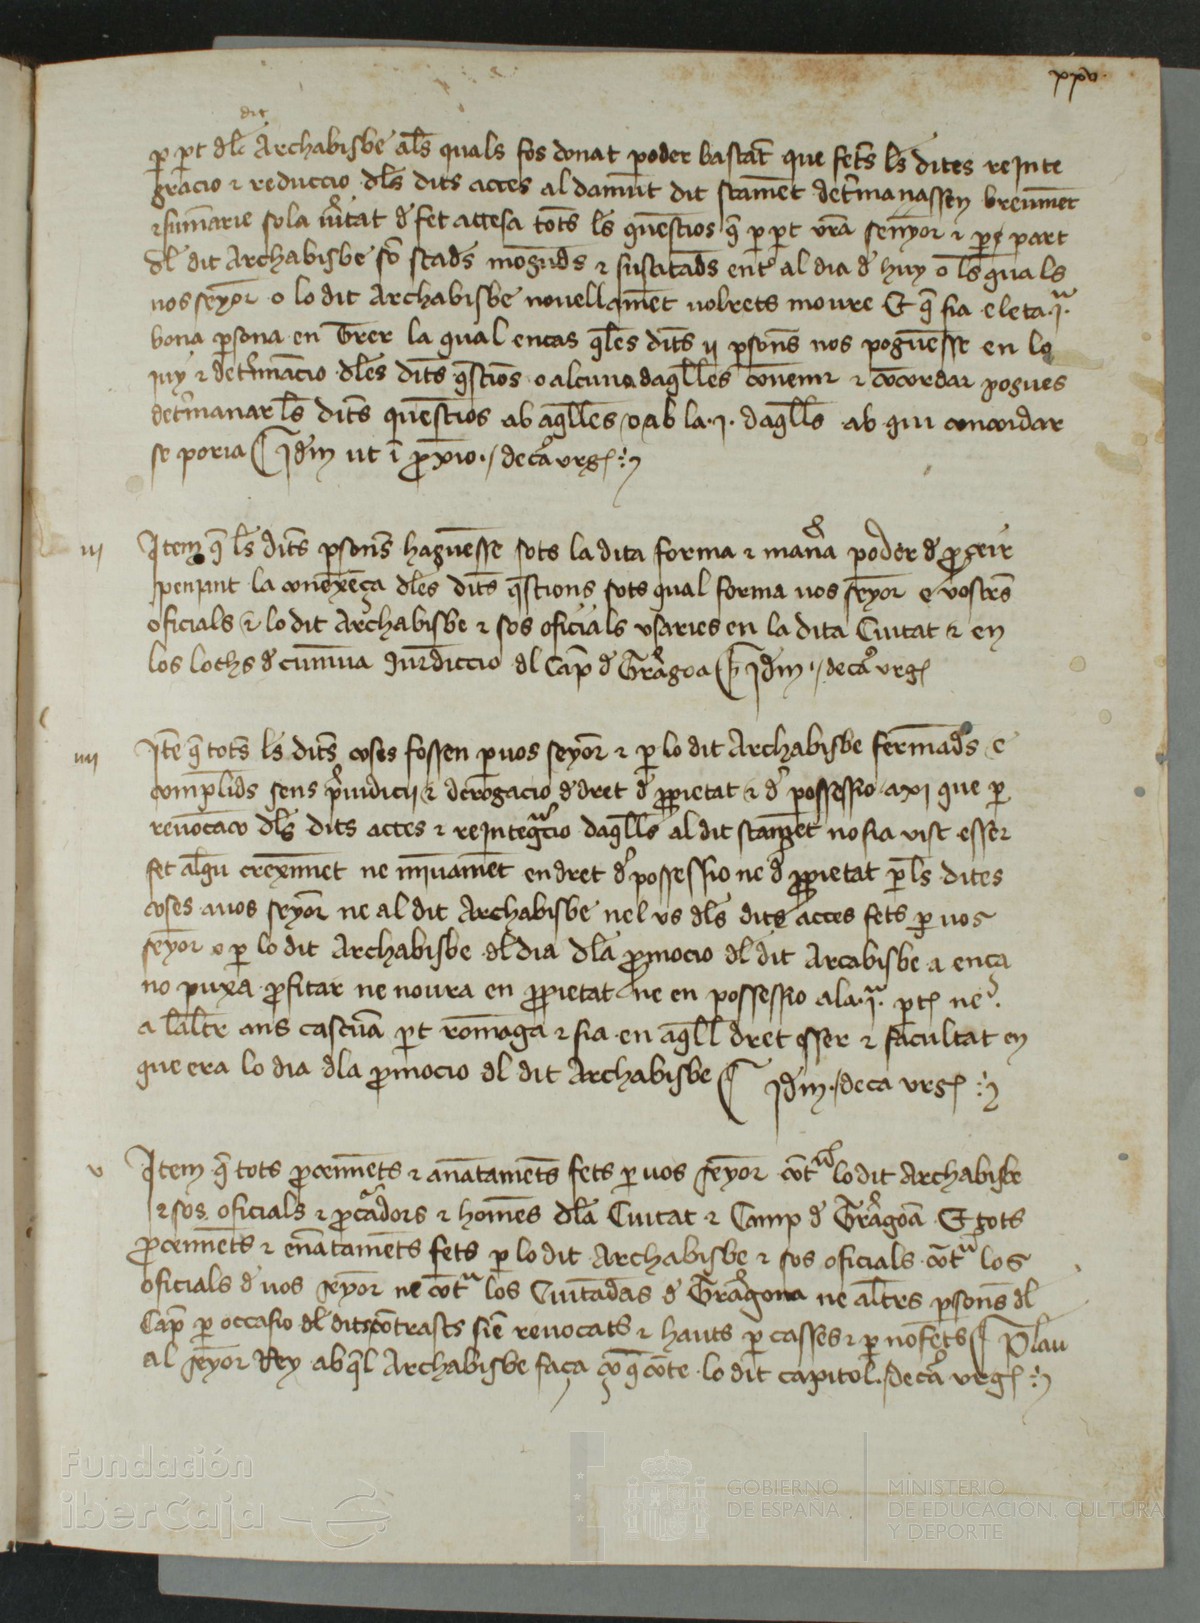 xxv
dit
p part dl Archabisbe als quals fos donat poder bastat que fets ls dites reinte
gracio e reduccio dls dits actes al damut dit stamet detmanassen breumet
e sumarie sola veritat de fet attesa tots ls questios q p part vra senyor e per part
dl dit Archabisbe so stads moguds e suscitads ent al dia de huy o ls quals
vos seyor o lo dit Archabisbe novellamet volrets moure Et q sia eleta .i.a
bona psona en trer la qual encas qles dits ii psons nos poguesse en lo
juy e detmacio dles dits qstios o alcuna daqlles covenir e cocordar pogues
detmanar ls dits questios ab aqlles o ab la .i. daqlls ab qui concordar
se poria Idm ut i pxio. / deca urg
iii
Item q ls dits psons haguesse sots la dita forma e mana poder de proceir
penjant la conexeça dles dits qstions sots qual forma vos seyor e vostrs
oficials e lo dit Archabisbe e sos oficials usaries en la dita Ciutat e en
los lochs de cumuna juridiccio dl Camp de Tragoa Idm. / deca urg
iiii
Ite q tots ls dits coses fossen p vos seyor e p lo dit Archabisbe fermads e
complids sens pjudicii e derogacio de dret de ppietat e de possessio axi que p
revocacio dls dits actes e reintegracio daqlls al dit stamet no sia vist esser
fet algu creximet ne minvamet en dret de possessio ne de ppietat p ls dites
coses a vos seyor ne al dit Archabisbe nel us dls dits actes fets p vos
seyor o p lo dit Archabisbe dl dia dla pmocio dl dit Arcabisbe a ença
no puxa pfitar ne noura en ppietat ne en possessio a la .i.a pt ne
a laltre ans cascua part romaga e sia en aqll dret esser e facultat en
que era lo dia dla pmocio dl dit Archabisbe Idm. / deca urg
v
Item q tots pcehimets e anatamets fets p vos seyor cotra lo dit Archabisbe
e sos oficials e pcuradors e homes dla Ciutat e Camp de Tragoa Et tots
pcehimets e enatamets fets p lo dit Archabisbe e sos oficials cotra los
oficials de vos seyor ne cotra los Ciutadas de Tragona ne altres psons dl
Camp p occasio dl dits cotrasts sie revocats e hauts p casses e p no fets Plau
al seyor Rey ab ql Archabisbe faça ço q cote lo dit capitol. / deca urg
Fundación
iberCaja
GOBIERNO
DE ESPAÑA
MINISTERIO
DE EDUCACIÓN, CULTURA
Y DEPORTE